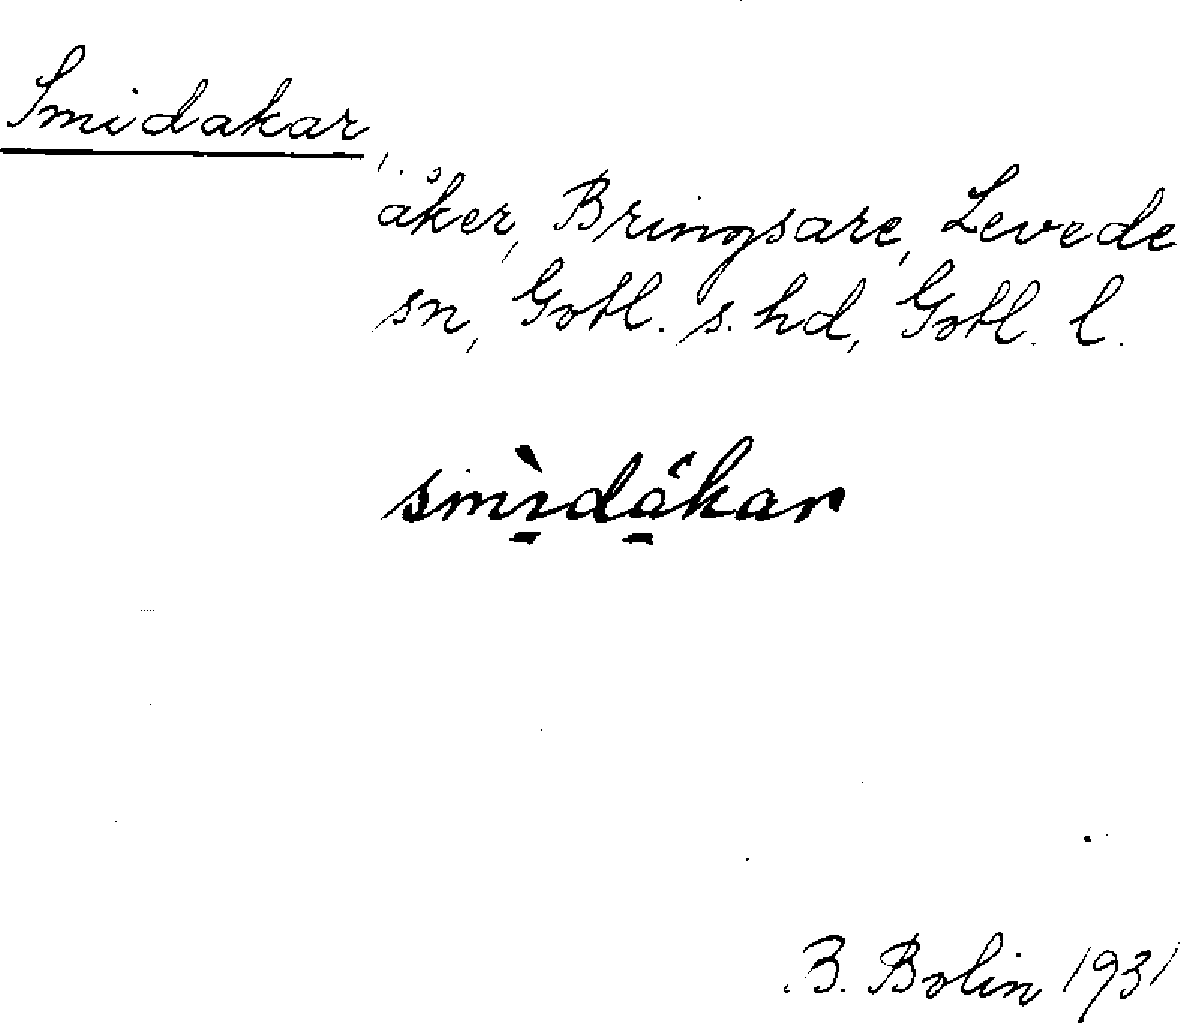 Smidakar,
åker, Bringsare, Levede
sn, Gotl. s. hd, Gotl. l.
smì̱dä̱kar
B. Bolin 1931